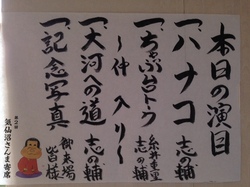 本日の演目
一、ハナコ 志の輔
一、ちゃぶ台トーク 糸井重里 志の輔
〜仲入り〜
一、大河への道 志の輔
一、記念写真 御来場 皆様
気仙沼さんま寄席